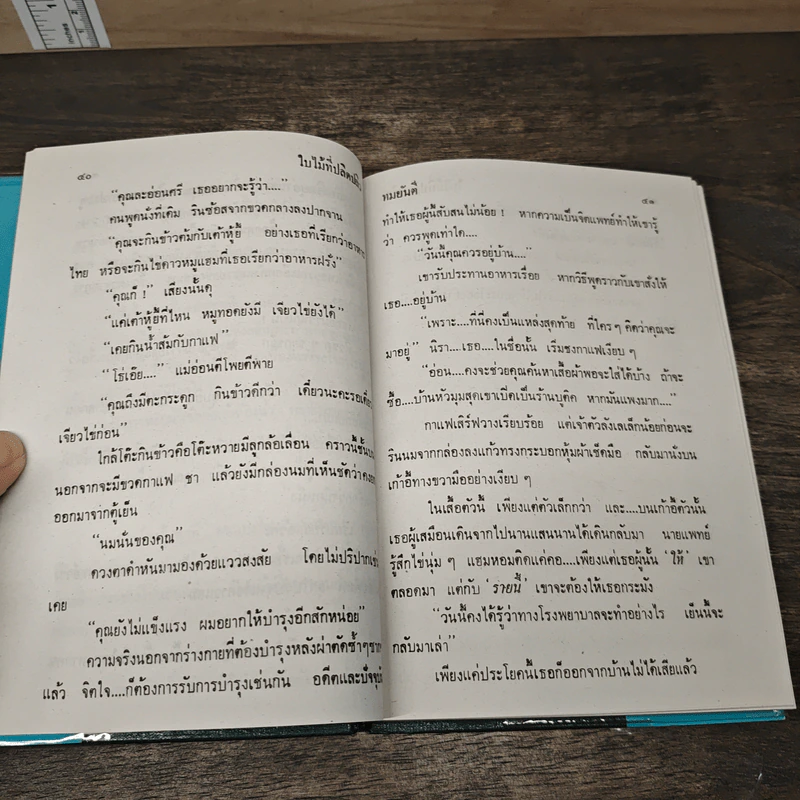 1
2
inches
๔๐
ใบไม้ที่ปลิดปลิว
“คุณละอ่อนศรี เธออยากจะรู้ว่า....”
คนพูดนั่งที่เดิม รินซ้อสจากขวดกลางลงปากจาน
“คุณจะกินข้าวต้มกับเต้าหู้ยี้ อย่างเธอที่เรียกว่าอาหาร
ไทย หรือจะกินไข่ดาวหมูแฮมที่เธอเรียกว่าอาหารฝรั่ง”
“คุณก็ !” เสียงนั้นดุ
“แค่เต้าหู้ยี้ที่ไหน หมูทอดยังมี เจียวไข่ยังได้”
“เคยกินน้ำส้มกับกาแฟ”
“โธ่เอ๊ย....” แม่อ่อนตีโพยตีพาย
“คุณถึงมีตะกระดูก กินข้าวดีกว่า เดี๋ยวนะคะรอเดี๋ยว
เจียวไข่ก่อน”
ใกล้โต๊ะกินข้าวคือโต๊ะหวายมีลูกล้อเลื่อน คราวนี้ชั้นบน
นอกจากจะมีขวดกาแฟ ชา แล้วยังมีกล่องนมที่เห็นชัดว่าคง
ออกมาจากตู้เย็น
“นมนั่นของคุณ”
ดวงตาดำหันมามองด้วยแววสงสัย โดยไม่ปริปากเช่น
เคย
“คุณยังไม่แข็งแรง ผมอยากให้บำรุงอีกสักหน่อย”
ความจริงนอกจากร่างกายที่ต้องบำรุงหลังผ่าตัดซ้ำๆ
แล้ว จิตใจ....ก็ต้องการรับการบำรุงเช่นกัน อดีตและปัจจุบัน
ทมยันตี
๔๑
ทำให้เธอผู้นี้สับสนไม่น้อย ! หากความเป็นจิตแพทย์ทำให้เขารู้
ว่า ควรพูดเท่าใด....
“วันนี้คุณควรอยู่บ้าน....”
เขารับประทานอาหารเรื่อย หากวิธีพูดราวกับเขาสั่งให้
เธอ....อยู่บ้าน
“เพราะ....ที่นี่คงเป็นแหล่งสุดท้าย ที่ใครๆ คิดว่าคุณจะ
มาอยู่” นิรา....เธอ....ในชื่อนั้น เริ่มชงกาแฟเงียบๆ
“อ่อน....คงจะช่วยคุณค้นหาเสื้อผ้าพอจะใส่ได้บ้าง ถ้าจะ
ซื้อ....บ้านหัวมุมสุดเขาเปิดเป็นร้านบูติค หากมันแพงมาก....”
กาแฟเสิร์ฟวางเรียบร้อย แต่เจ้าตัวลังเลเล็กน้อยก่อนจะ
รินนมจากกล่องลงแก้วทรงกระบอกหุ้มผ้าเช็ดมือ กลับมานั่งบน
เก้าอี้ทางขวามืออย่างเงียบๆ
ในเสื้อตัวนี้ เพียงแต่ตัวเล็กกว่า และ....บนเก้าอี้ตัวนั้น
เธอผู้เสมือนเดินจากไปนานแสนนานได้เดินกลับมา นายแพทย์
รู้สึกไข่นุ่มๆ แฮมหอมติดแค่คอ....เพียงแต่เธอผู้นั้น ‘ให้’ เขา
ตลอดมา แต่กับ ‘รายนี้’ เขาจะต้องให้เธอกระมัง
“วันนี้คงได้รู้ว่าทางโรงพยาบาลจะทำอย่างไร เย็นนี้จะ
กลับมาเล่า”
เพียงแค่ประโยคนี้เธอก็ออกจากบ้านไม่ได้เสียแล้ว